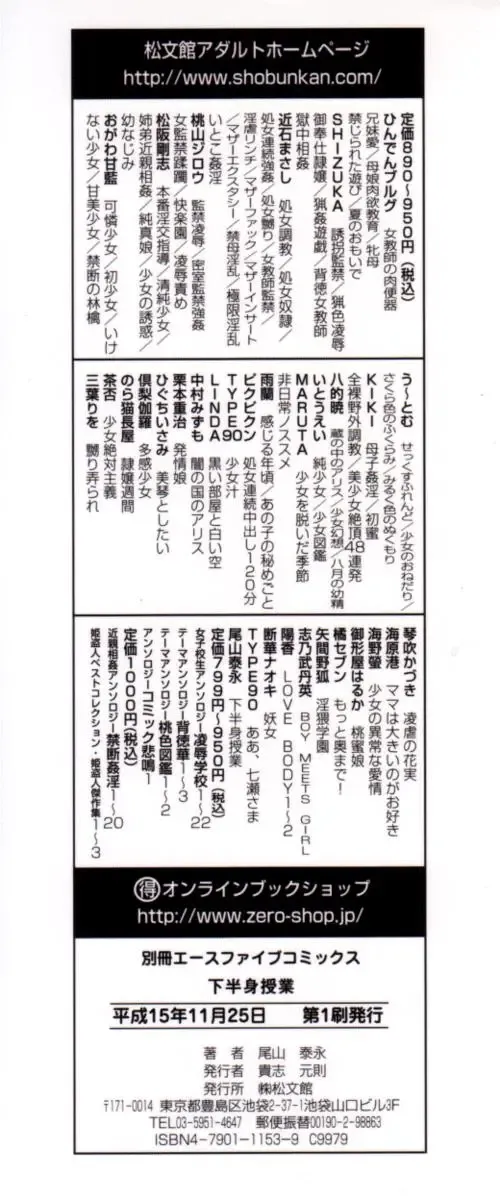 松文館アダルトホームページ
http://www.shobunkan.com/
定価890~950円(税込)
ひんでんブルグ 女教師の肉便器
兄妹愛/母娘肉欲教育/牝母
禁じられた遊び/夏のおもいで
SHIZUKA 誘拐監禁/猟色凌辱
御奉仕隷嬢/猟姦遊戯/背徳女教師
獄中相姦
近石まさし 処女調教/処女奴隷/
処女連続強姦/処女嬲り/女教師監禁/
淫虐リンチ/マザーファック/マザーインサート
/マザーエクスタシー/禁母淫乱/極限淫乱
いとこ姦淫
桃山ジロウ 監禁凌辱/密室監禁強姦
女監禁蹂躙/快楽園/凌辱責め
松阪剛志 本番淫交指導/清純少女/
姉弟近親相姦/純真娘/少女の誘惑/
幼なじみ
おがわ甘藍 可憐少女/初少女/いけ
ない少女/甘美少女/禁断の林檎
う~とむ せっくすふれんど/少女のおねだり/
さくら色のふくらみ/みるく色のぬくもり
KIKI 母子姦淫/初蜜
全裸野外調教/美少女絶頂48連発
八的暁 蔵の中のアリス/少女幻想/八月の幼精
いとうえい 純少女/少女図鑑
MARUTA 少女を脱いだ季節
非日常ノススメ
雨蘭 感じる年頃/あの子の秘めごと
ビクビクン 処女連続中出し120分
TYPE90 少女汁
LINDA 黒い部屋と白い空
中村みずも 闇の国のアリス
栗本重治 発情娘
ひぐちいさみ 美琴としたい
倶梨伽羅 多感少女
のら猫長屋 隷嬢週間
茶否 少女絶対主義
三葉りを 嬲り弄られ
琴吹かづき 凌虐の花実
海原港 ママは大きいのがお好き
海野螢 少女の異常な愛情
御形屋はるか 桃蜜娘
橘セブン もっと奥まで!
矢間野狐 淫猥学園
志乃武丹英 BOY MEETS GIRL
陽香 LOVE BODY1~2
断華ナオキ 妖女
TYPE90 ああ、七瀬さま
尾山泰永 下半身授業
定価799円~950円(税込)
女子校生アンソロジー凌辱学校1~22
テーマアンソロジー背徳華1~3
テーマアンソロジー桃色図鑑1~2
アンソロジーコミック悲鳴1
定価1000円(税込)
近親相姦アンソロジー禁断姦淫1~20
姫盗人ベストコレクション・姫盗人傑作集1~3
得オンラインブックショップ
http://www.zero-shop.jp/
別冊エースファイブコミックス
下半身授業
平成15年11月25日 第1刷発行
著 者 尾山 泰永
発行者 貴志 元則
発行所 ㈱松文館
〒171-0014 東京都豊島区池袋2-37-1池袋山口ビル3F
TEL03-5951-4647 郵便振替00190-2-98863
ISBN4-7901-1153-9 C9979